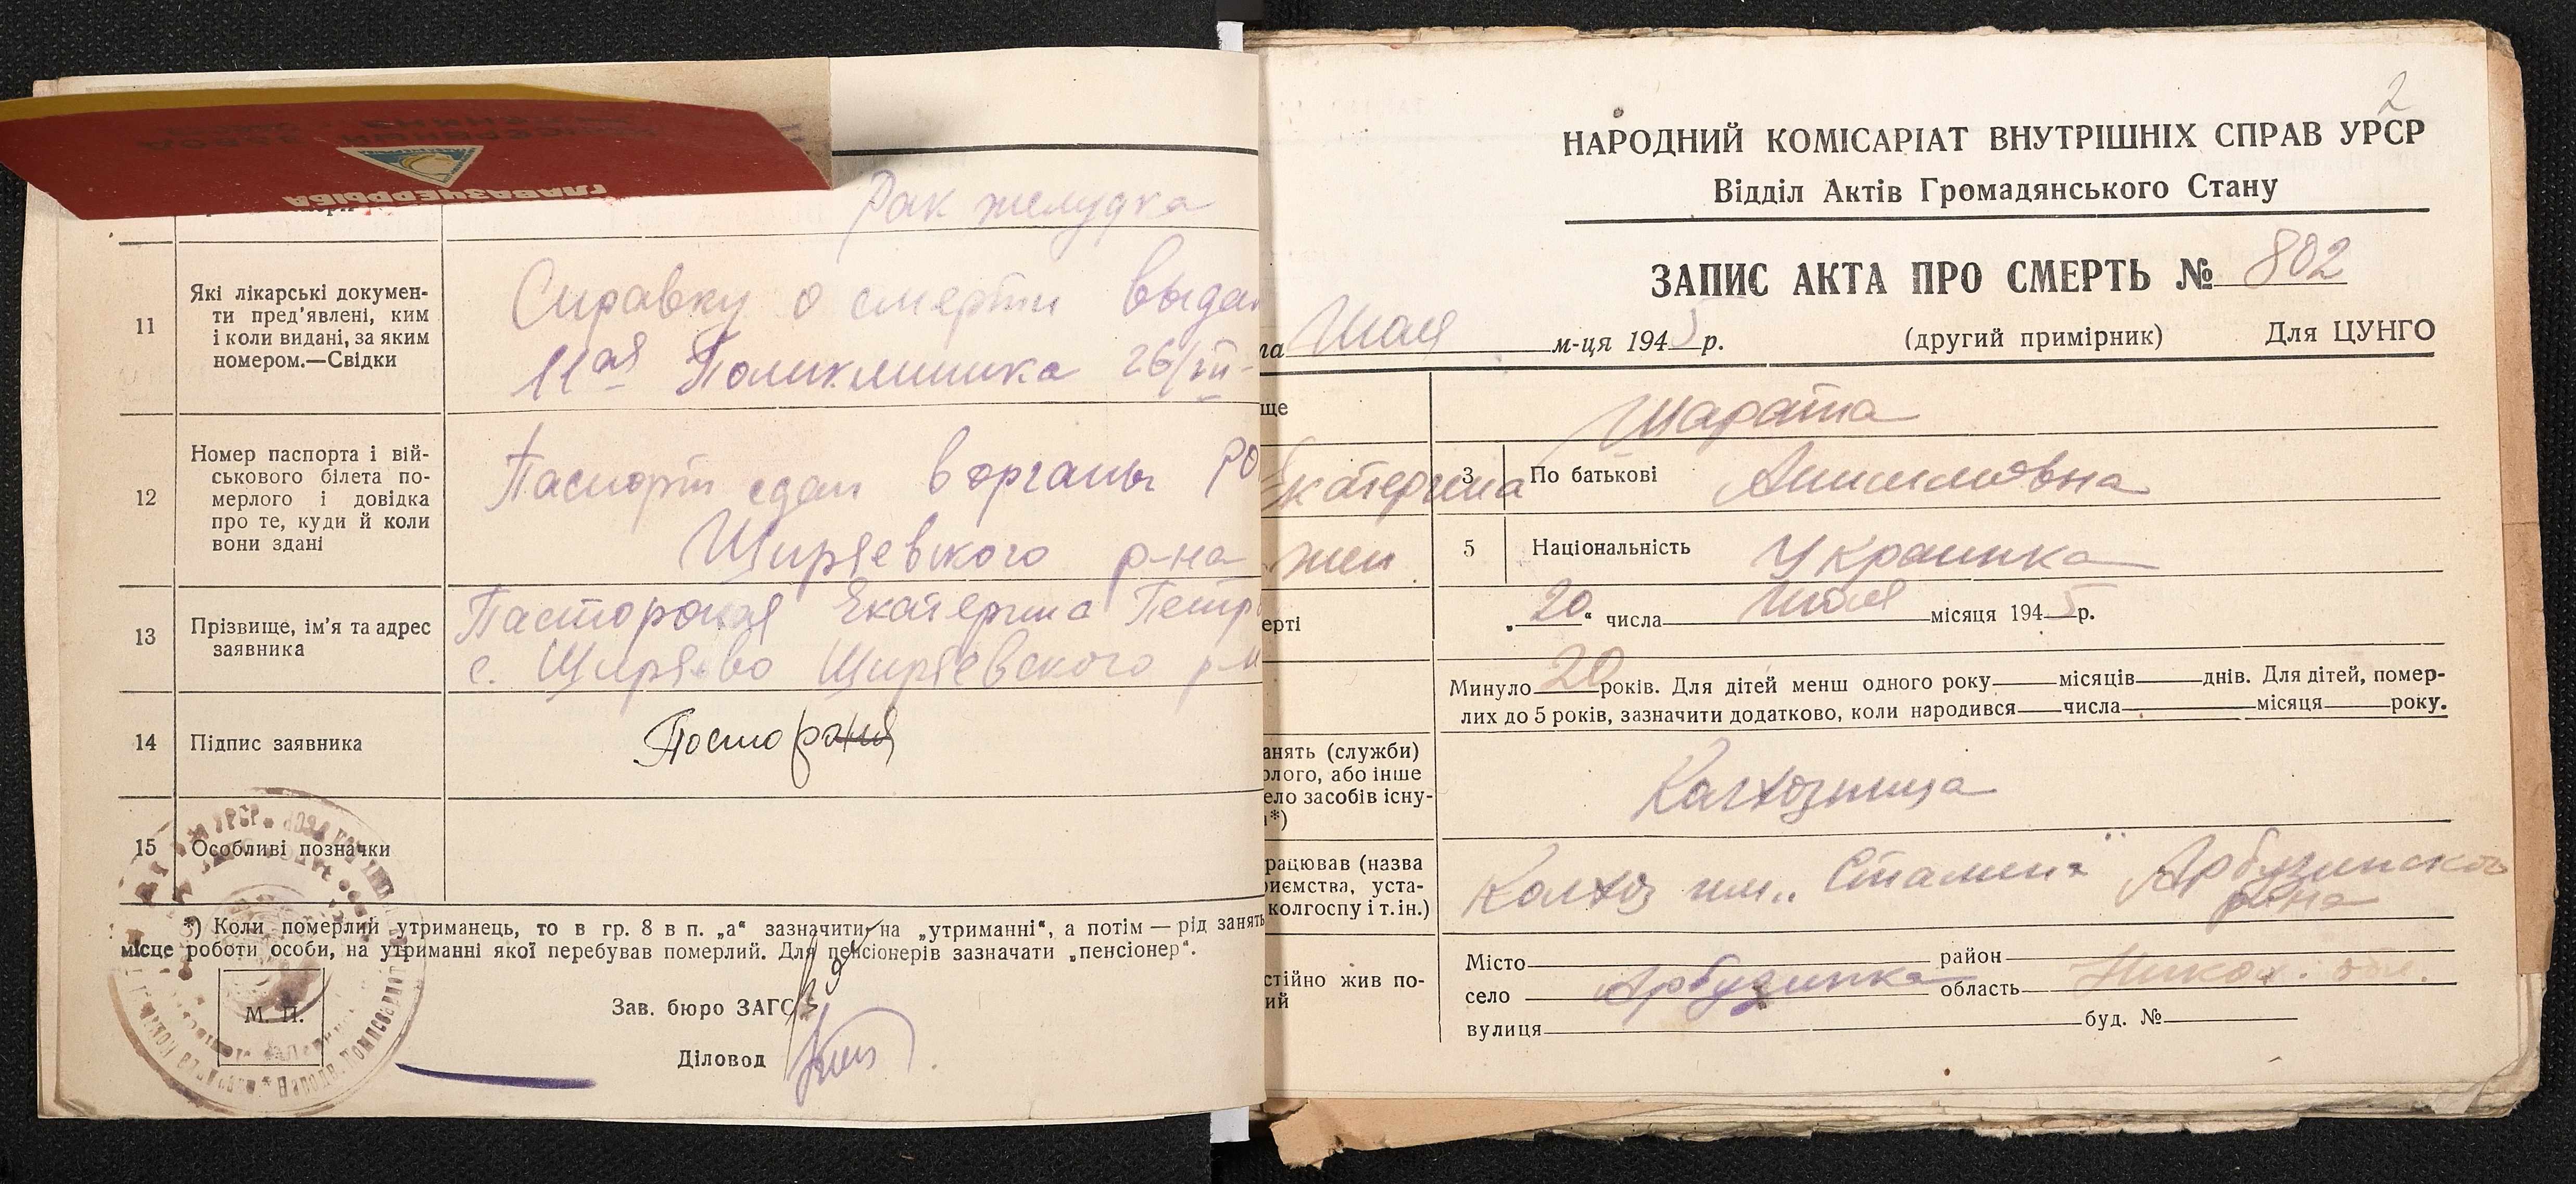 ГЛАВАЗЧЕРРЫБА
Рак желудка
11
Які лікарські докумен-
ти пред'явлені, ким
і коли видані, за яким
номером.—Свідки
Справку о смерти выдан
11ая Поликлиника 26/VII-
12
Номер паспорта і вій-
ськового білета по-
мерлого і довідка
про те, куди й коли
вони здані
Паспорт сдан в органы РО
Ширяевского р-на
13
Прізвище, ім'я та адрес
заявника
Екатерина Петр
с. Ширяево Ширяевского р-н
14
Підпис заявника
15
Особливі позначки
*) Коли померлий утриманець, то в гр. 8 в п. „а“ зазначити на „утриманні“, а потім — рід занять
місце роботи особи, на утриманні якої перебував померлий. Для пенсіонерів зазначати „пенсіонер“.
М. П.
Зав. бюро ЗАГС
Діловод
2
НАРОДНИЙ КОМІСАРІАТ ВНУТРІШНІХ СПРАВ УРСР
Відділ Актів Громадянського Стану
ЗАПИС АКТА ПРО СМЕРТЬ № 802
га Июля м-ця 1945 р. (другий примірник) Для ЦУНГО
ще
Шарата
Екатерина
3
По батькові
жен
5
Національність Украинка
ерті
„20“ числа Июля місяця 1945 р.
Минуло 20 років. Для дітей менш одного року місяців днів. Для дітей, помер-
лих до 5 років, зазначити додатково, коли народився числа місяця року.
анять (служби)
олого, або інше
ело засобів існу-
*)
Колхозница
рацював (назва
риємства, уста-
колгоспу і т. ін.)
Колхоз им. „Сталина“ Арбузинского
р-на
стійно жив по-
ий
Місто район
село Арбузинка область Никол. обл.
вулиця буд. №